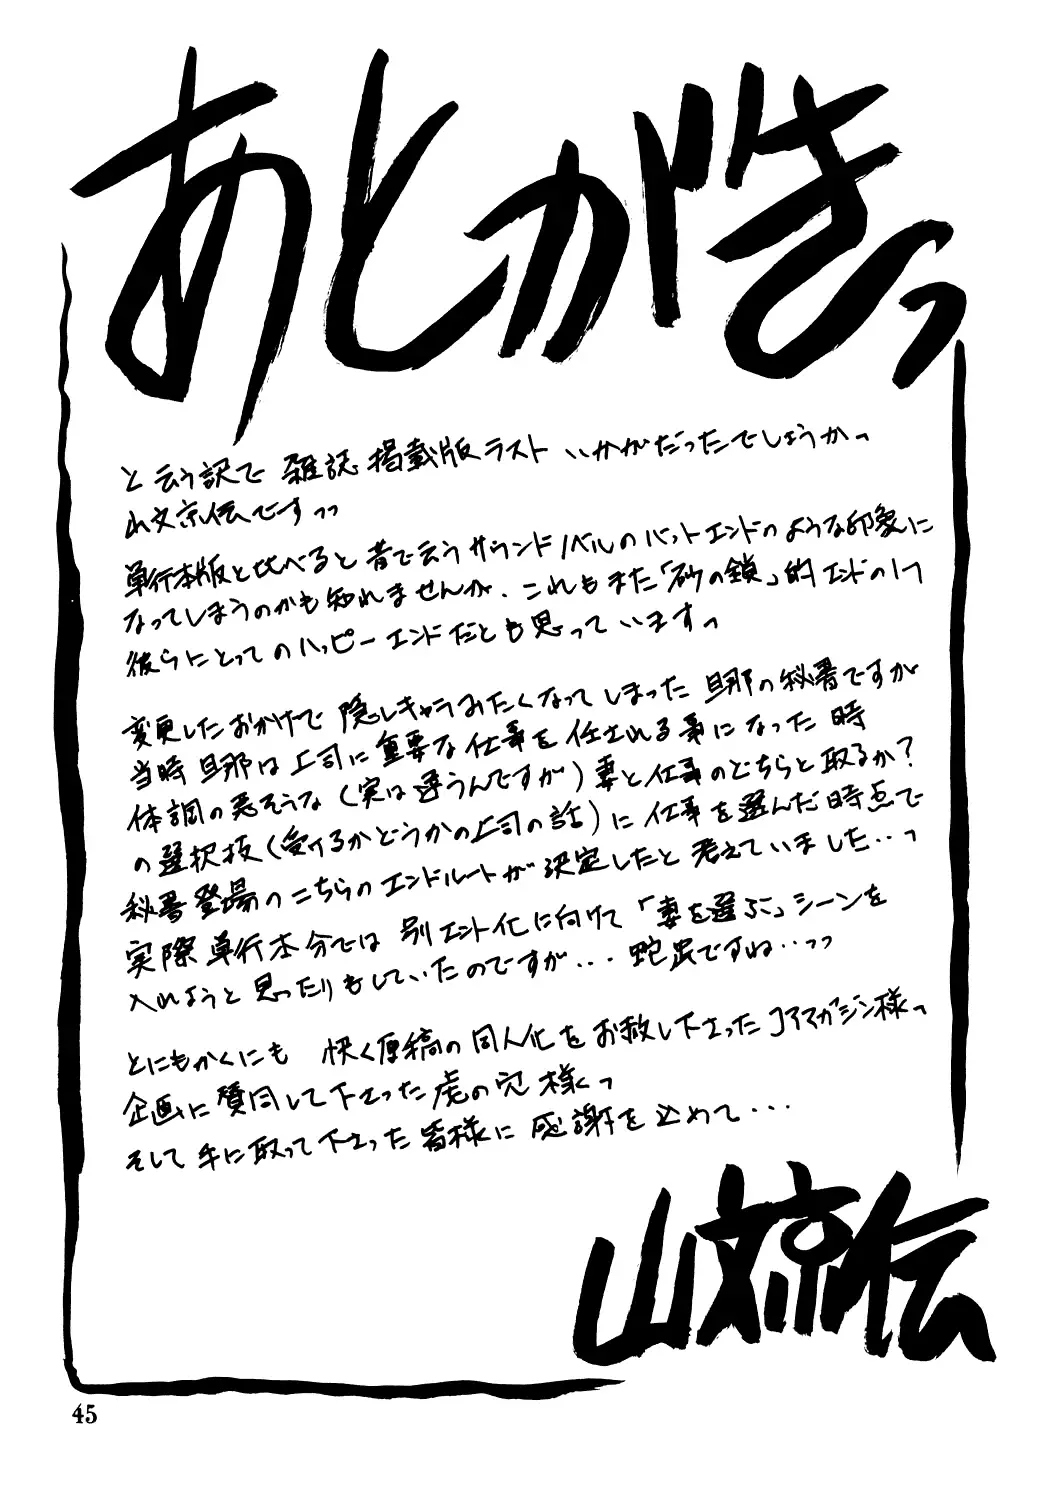 あとがきっ
と云う訳で 雑誌掲載版ラスト いかがだったでしょうかっ
山文京伝ですっっ
単行本版と比べると昔で云うサウンドノベルのバットエンドのような印象に
なってしまうのかも知れませんが、これもまた「砂の鎖」的エンドの1つ
彼らにとってのハッピーエンドだとも思っていますっ
変更したおかげで 隠しキャラみたくなってしまった 旦那の秘書ですが
当時旦那は上司に重要な仕事を任される事になった時
体調の悪そうな(実は違うんですが)妻と仕事のどちらと取るか?
の選択技(受けるかどうかの上司の話)に仕事を選んだ時点で
秘書登場のこちらのエンドルートが決定したと考えていました‥っ
実際単行本分では 別エンド化に向けて「妻を選ぶ」シーンを
入れようと思ったりもしていたのですが... 蛇足ですね‥っっ
とにもかくにも 快く原稿の同人化をお赦し下さったコアマガジン様っ
企画に賛同して下さった虎の穴様くっ
そして手に取って下さった皆様に感謝を込めて...
山文京伝
45